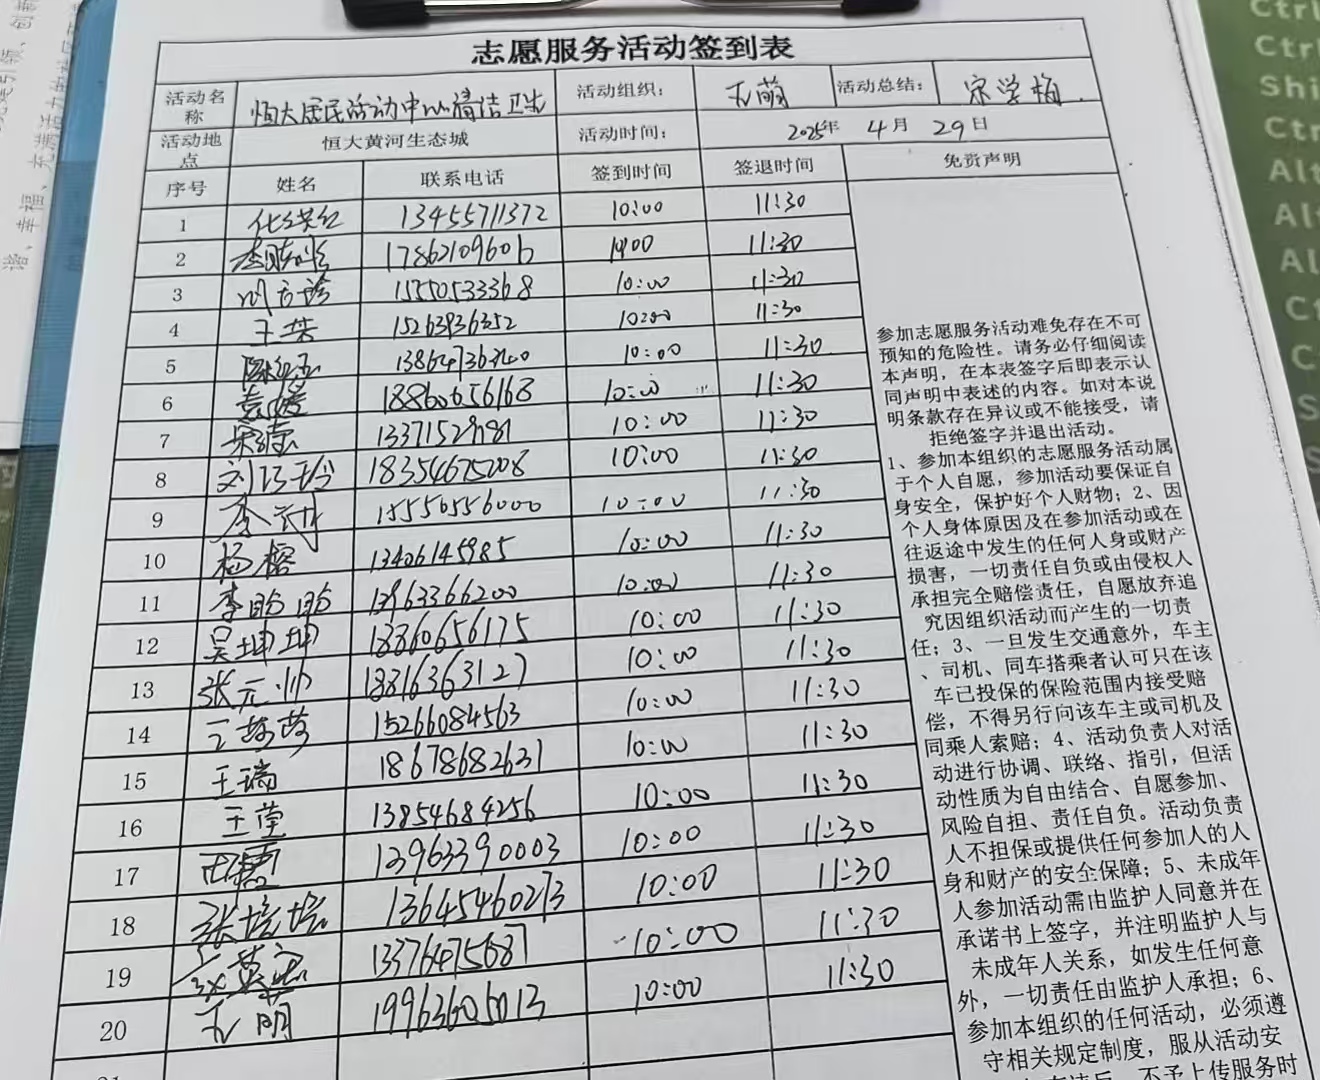 志愿服务活动签到表
活动名称 恒大居民活动中心清洁卫生 活动组织: 活动总结: 宋学梅
活动地点 恒大黄河生态城 活动时间: 2025年 4月 29日
序号 姓名 联系电话 签到时间 签退时间 免责声明
1 13455711372 10:00 11:30
2 17862109606 10:00 11:30
3 15550533368 10:00 11:30
4 王荣 15263936352 10:00 11:30
5 10:00 11:30
6 袁媛 18860656168 10:00 11:30
7 10:00 11:30
8 刘巧玲 18354675208 10:00 11:30
9 15550556000 10:00 11:30
10 杨榕 13406145985 10:00 11:30
11 李盼盼 13963366200 10:00 11:30
12 吴坤坤 18860656175 10:00 11:30
13 张元帅 18816363127 10:00 11:30
14 15266084563 10:00 11:30
15 王瑞 18678682631 10:00 11:30
16 王莹 13854684256 10:00 11:30
17 13963390003 10:00 11:30
18 张培培 13645460273 10:00 11:30
19 13376475687 10:00 11:30
20 19963605013 10:00 11:30
参加志愿服务活动难免存在不可
预知的危险性。请务必仔细阅读
本声明,在本表签字后即表示认
同声明中表述的内容。如对本说
明条款存在异议或不能接受,请
拒绝签字并退出活动。
1、参加本组织的志愿服务活动属
于个人自愿,参加活动要保证自
身安全,保护好个人财物;2、因
个人身体原因及在参加活动或在
往返途中发生的任何人身或财产
损害,一切责任自负或由侵权人
承担完全赔偿责任,自愿放弃追
究因组织活动而产生的一切责
任;3、一旦发生交通意外,车主
、司机、同车搭乘者认可只在该
车已投保的保险范围内接受赔
偿,不得另行向该车主或司机及
同乘人索赔;4、活动负责人对活
动进行协调、联络、指引,但活
动性质为自由结合、自愿参加、
风险自担、责任自负。活动负责
人不担保或提供任何参加人的人
身和财产的安全保障;5、未成年
人参加活动需由监护人同意并在
承诺书上签字,并注明监护人与
未成年人关系,如发生任何意
外,一切责任由监护人承担;6、
参加本组织的任何活动,必须遵
守相关规定制度,服从活动安
不予上传服务时
Ctrl
Shi
Ctr
Alt
Al